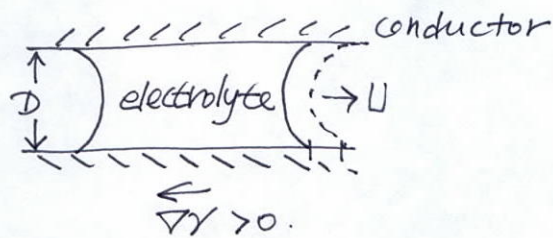 conductor
D electrolyte → U
←
∇γ > 0.